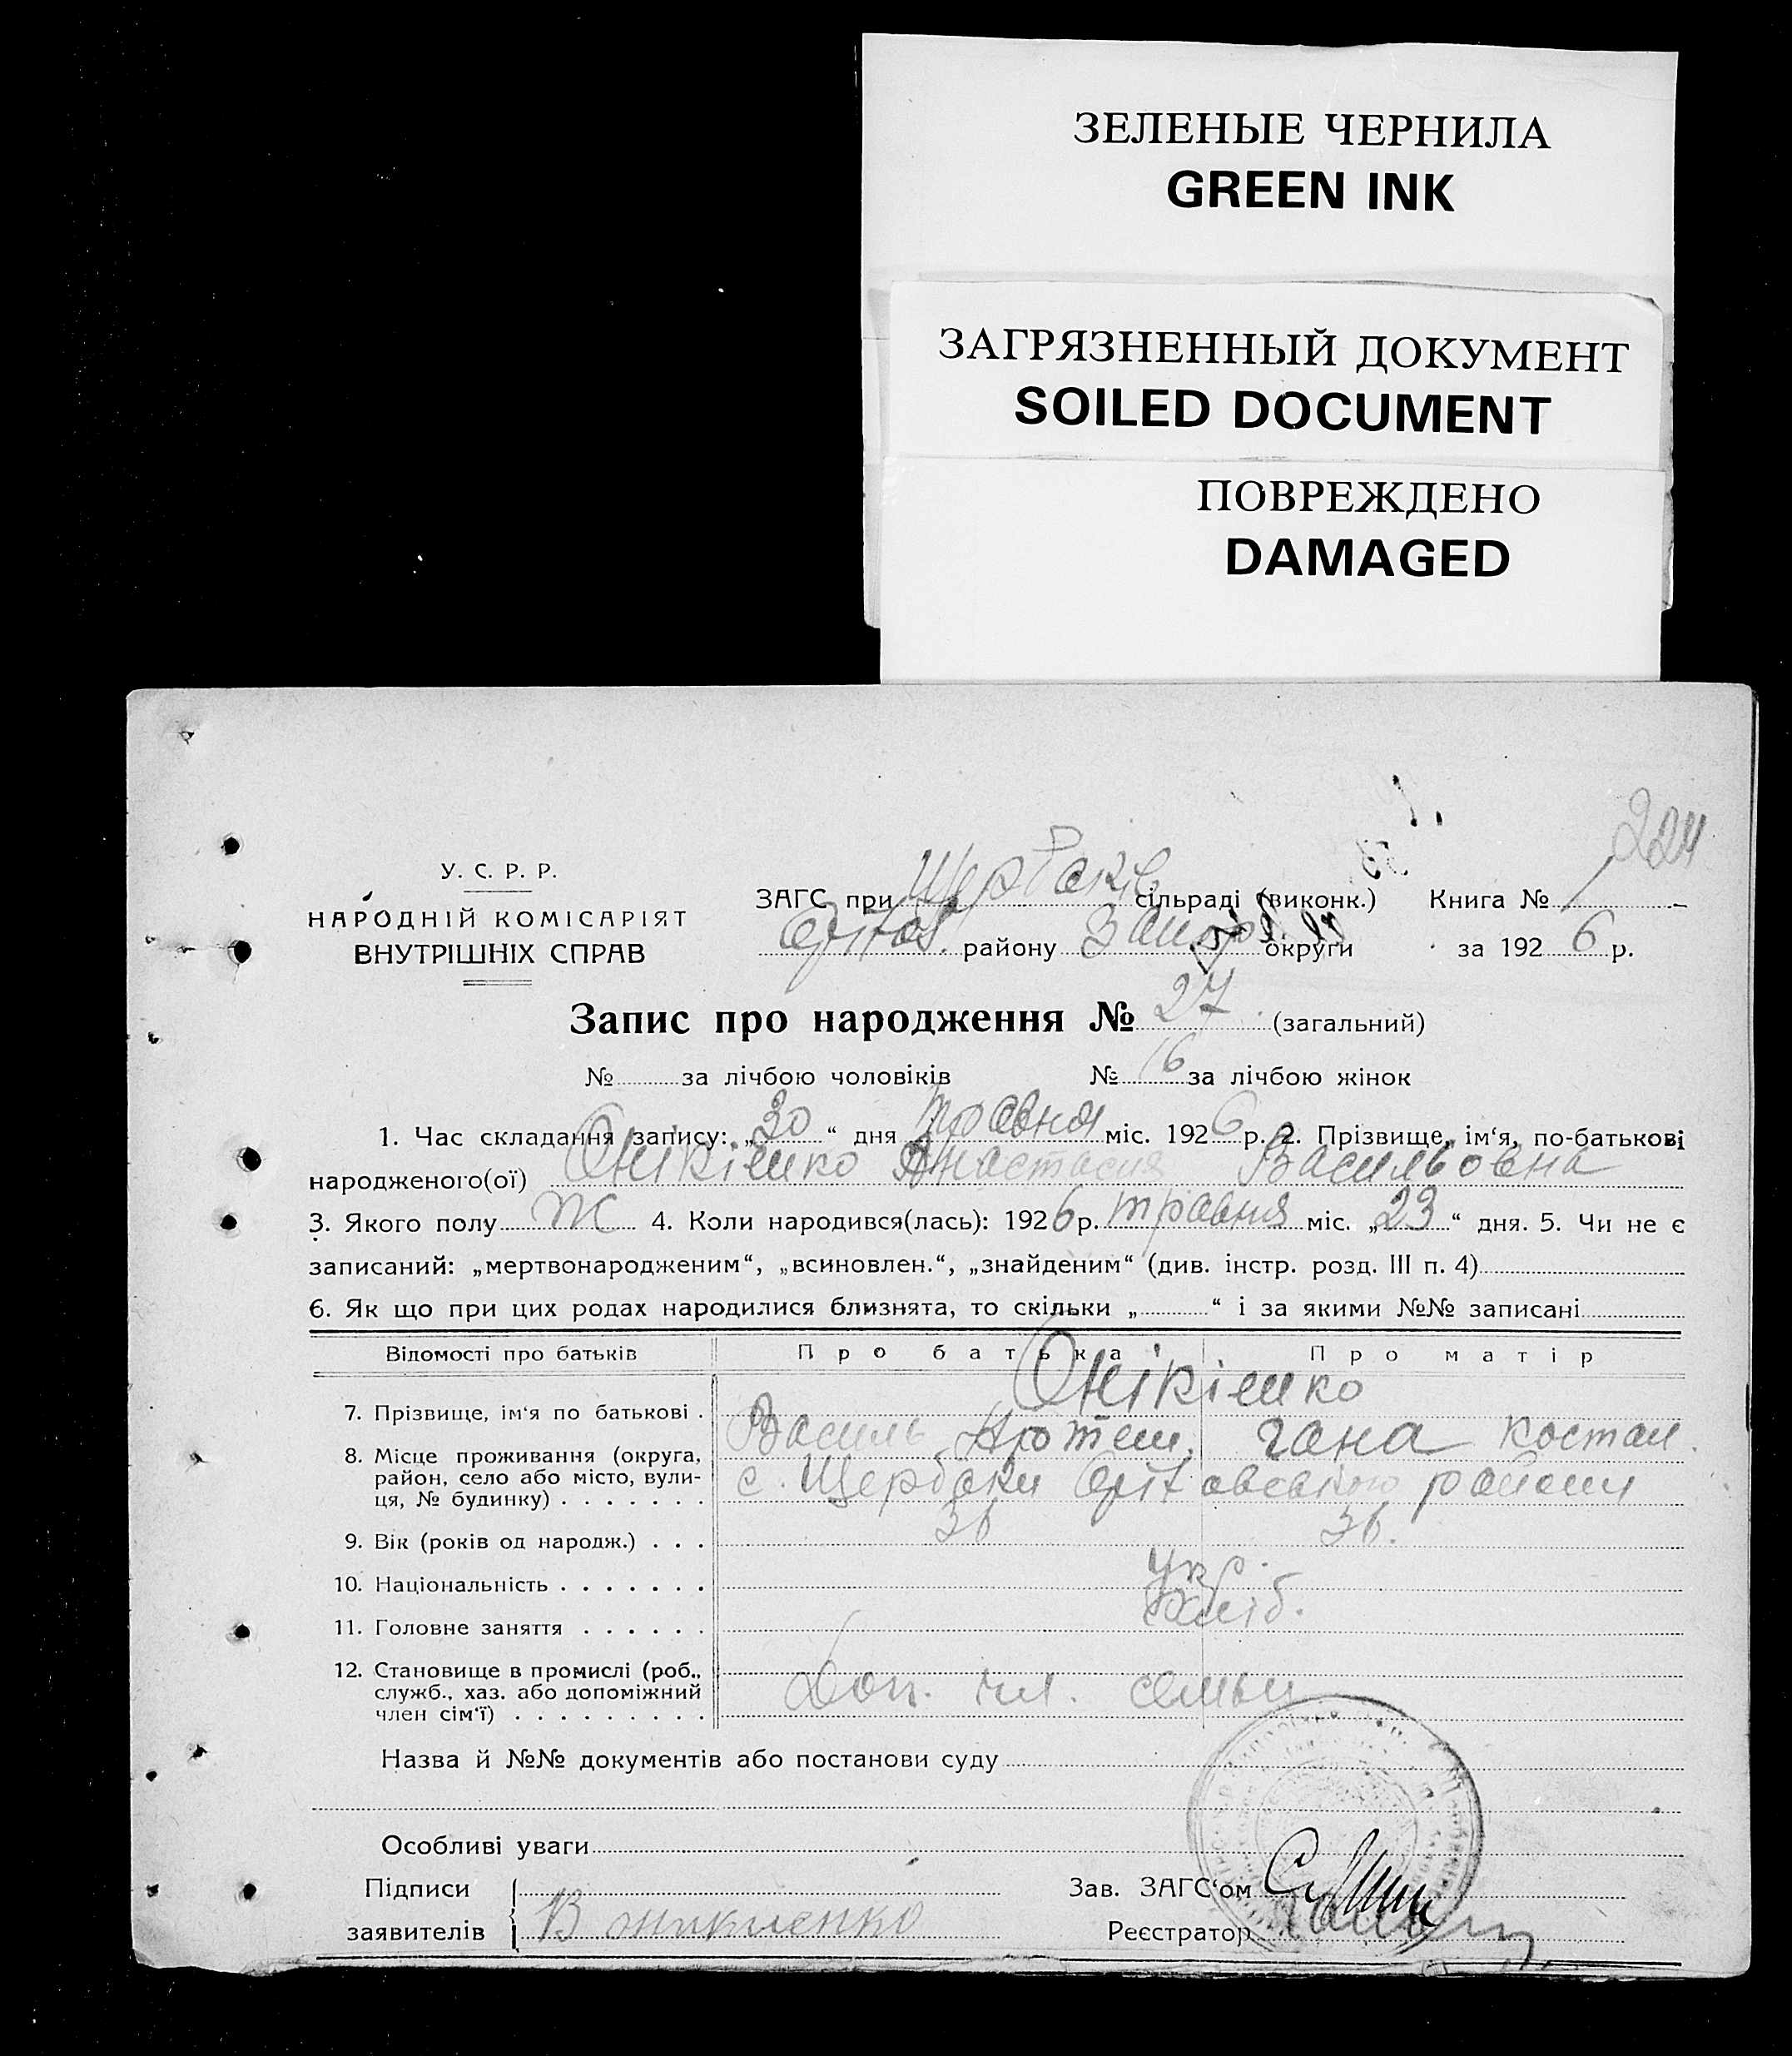 ЗЕЛЕНЫЕ ЧЕРНИЛА
GREEN INK
ЗАГРЯЗНЕННЫЙ ДОКУМЕНТ
SOILED DOCUMENT
ПОВРЕЖДЕНО
DAMAGED
224
У. С. Р. Р.
НАРОДНІЙ КОМІСАРІЯТ
ВНУТРІШНІХ СПРАВ
ЗАГС при Щербаків сільраді (виконк.) Книга № 1
району Запоріз округи за 1926 р.
Запис про народження № 27 (загальний)
№ за лічбою чоловіків № 16 за лічбою жінок
1. Час складання запису: „30“ дня травня міс. 1926 р. 2. Прізвище, ім‘я, по-батькові
народженого(ої) Онікієнко Анастасия Васильовна
3. Якого полу Ж 4. Коли народився(лась): 1926 р. травня міс. „23“ дня. 5. Чи не є
записаний: „мертвонародженим“, „всиновлен.“, „знайденим“ (див. інстр. розд. III п. 4)
6. Як що при цих родах народилися близнята, то скільки „ “ і за якими №№ записані
Відомості про батьків Про батька Про матір
Онікієнко
7. Прізвище, ім‘я по батькові . Василь Артем. Гана Костан.
8. Місце проживання (округа,
район, село або місто, вули-
ця, № будинку) . . . . . . . с. Щербаки району
9. Вік (років од народж.) . . . 36 36.
10. Національність . . . . . . . укр.
11. Головне заняття . . . . . . хліб.
12. Становище в промислі (роб.,
служб., хаз. або допоміжний
член сім‘ї) . . . . . . . . . Доп. чл. семьи
Назва й №№ документів або постанови суду
Особливі уваги
Підписи
заявителів В Оникиенко
Зав. ЗАГС‘ом
Реєстратор